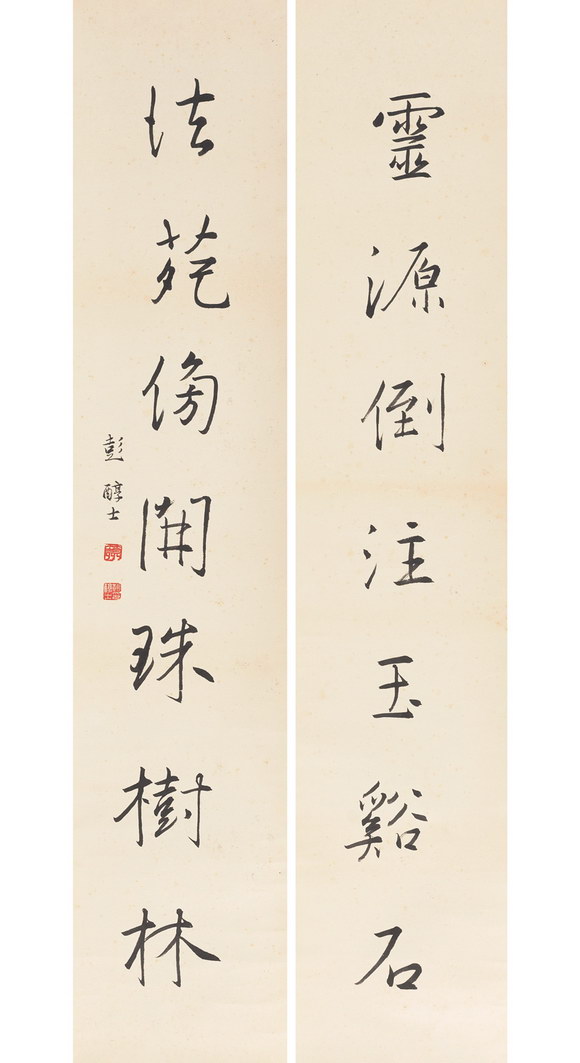 靈源倒注玉谿石
法苑傍開珠樹林
彭醇士